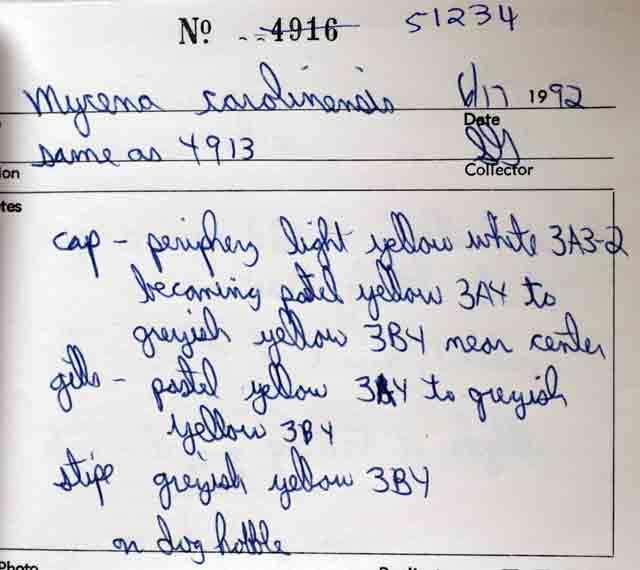 Nº 4916 51234
Mycena carolinensis 6/17 1992
Date
same as 4913
ion Collector
tes
cap - periphery light yellow white 3A3-2
becoming pastel yellow 3A4 to
greyish yellow 3B4 near center
gills - pastel yellow 3A4 to greyish
yellow 3B4
stipe greyish yellow 3B4
on dog hobble
Photo